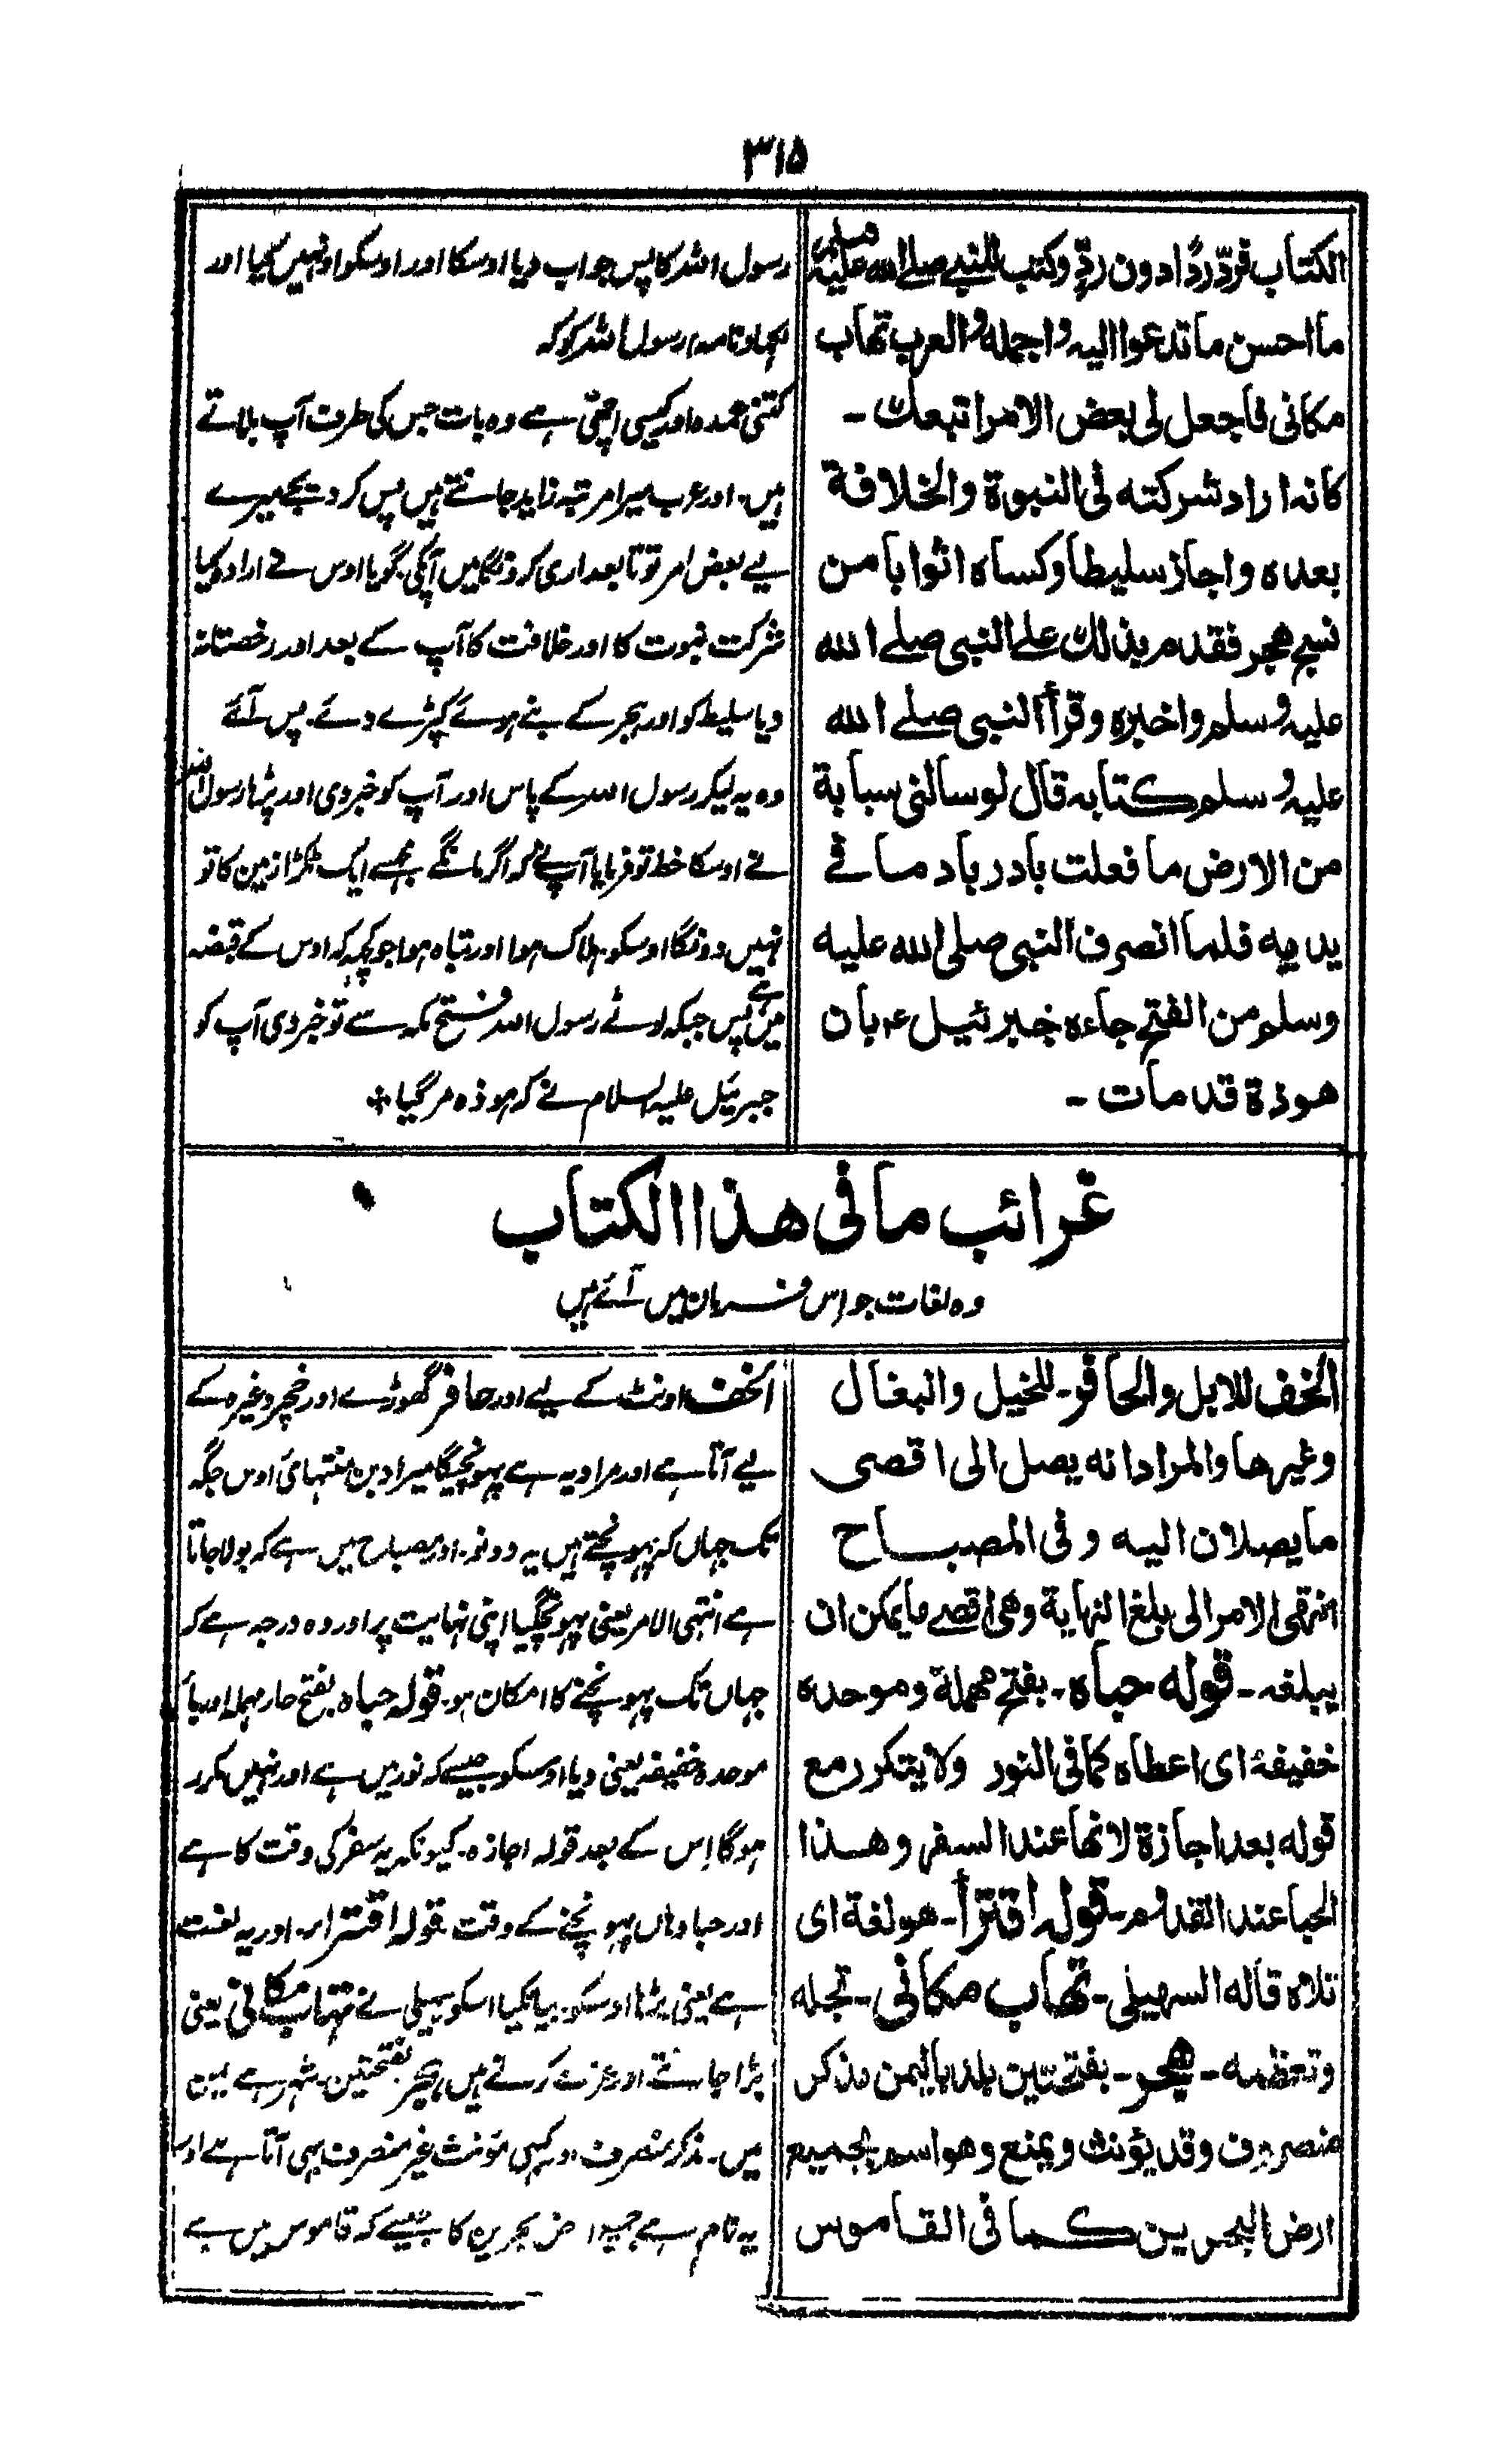 ۳۱۵
الکتاب فردّ ردًّا دون ردٍّ وکتب للنبی صلی الله علیه وسلم
ما احسن ما تدعوا الیه واجمله والعرب تهاب
مکانی فاجعل لی بعض الامر اتبعک ۔
کانه اراد شرکته فی النبوة والخلافة
بعده واجاز سلیطا وکساه اثوابا من
نسج هجر فقدم بذالک علی النبی صلی الله
علیه وسلم واخبره وقرأ النبی صلی الله
علیه وسلم کتابه قال لو سالنی سبابة
من الارض ما فعلت باد رباد ما فی
یدیه فلما انصرف النبی صلی الله علیه
وسلم من الفتح جاءه جبرئیل ع بان
هوذة قد مات ۔
رسول اللہ کا پس جواب دیا اوسکا اور اوسکو اونہیں کیا اور
لکہا ونامہ رسول اللہ کو کہ
کتنی عمدہ اور کیسی اچھی ہے وہ بات جس کی طرف آپ بلاتے
ہیں۔ اور عرب میرا مرتبہ زاید جانتے ہیں پس کر دیجے میرے
لیے بعض امر تو تابعداری کرونگا میں آپکی۔ گویا اوس نے ارادہ کیا
شرکت نبوت کا اور خلافت کا آپ کے بعد اور رخصتانہ
دیا سلیط کو اور ہجر کے بنے ہوئے کپڑے دئے۔ پس آئے
وہ یہ لیکر رسول اللہ کے پاس اور آپ کو خبر دی اور پڑہا رسول اللہ
نے اوسکا خط تو فرمایا آپ نے کہ اگر مانگے مجہسے ایک ٹکڑا زمین کا تو
نہیں دونگا اوسکو۔ ہلاک ہوا اور تباہ ہوا جو کچہہ کہ اوس کے قبضہ
میں ہے پس جبکہ لوٹے رسول اللہ فتح مکہ سے تو خبر دی آپ کو
جبرئیل علیہ السلام نے کہ ہوذہ مر گیا ٭
غرائب ما فی هذا الکتاب
وہ لغات جو اِس فرمان میں آئے ہیں
الخف للابل والحافر۔ للخیل والبغال
وغیرها والمراد انه یصل الی اقصی
ما یصلان الیه وفی المصباح
انتهی الامر الی بلغ النهایة وهی اقصے ما یمکن ان
یبلغه ۔ قوله حباه ۔ بفتح مهملة وموحده
خفیفة ای اعطاه کما فی النور ولا یتکرر مع
قوله بعد اجازة لانها عند السفر وهذا
الحبا عند القدوم ۔ قوله اقترأ ۔ هو لغة ای
تلاه قاله السهیلی ۔ تهاب مکانی ۔ تجله
وتعظمه ۔ هجر ۔ بفتحتین بلد بالیمن مذکر
منصرف وقد یؤنث ویمنع وهو اسم لجمیع
ارض البحرین کما فی القاموس
الخف اونٹ کے لیے اور حافر گھوڑے اور خچر وغیرہ کے
لیے آتا ہے اور مراد یہ ہے پہونچیگا میرا دین منتہائی اوس جگہ
تک جہاں کہ پہونچتے ہیں یہ دونو۔ اور مصباح میں ہے کہ بولا جاتا
ہے انتہی الامر یعنی پہونچگیا اپنی نہایت پر اور وہ درجہ ہے کہ
جہاں تک پہونچنے کا امکان ہو۔ قولہ حباہ بفتح حار مہملہ اور بائ
موحدہ خفیفہ یعنی دیا اوسکو جیسے کہ نور میں ہے اور نہیں مکرر
ہوگا اِس کے بعد قولہ اجازہ۔ کیونکہ یہ سفر کی وقت کا ہے
اور حبا وہاں پہونچنے کے وقت۔ قولہ اقترار۔ اور یہ لغت
ہے یعنی پڑہا اوسکو۔ بیان کیا اسکو سہیلی نے تہاب مکانی یعنی
بڑا جانتے اور عزت کرتے ہیں۔ ہجر بفتحتین۔ شہر ہے یمن
میں۔ مذکر منصرف۔ اور کبھی مؤنث غیر منصرف بہی آتا ہے اور
یہ نام ہے جمیع ارض بحرین کا جیسے کہ قاموس میں ہے